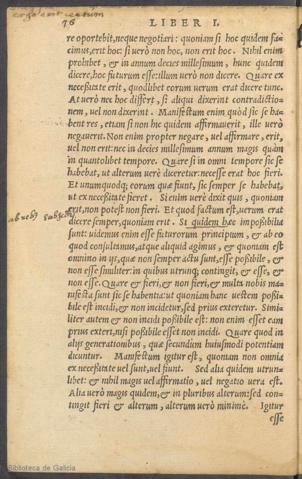 76 LIBER I.
re oportebit, neque negotiari: quoniam si hoc quidem fa-
cimus, erit hoc: si uerò non hoc, non erit hoc. Nihil enim
prohibet, & in annum decies millesimum, hunc quidem
dicere, hoc futurum esse: illum uerò non dicere. Quare ex
necessitate erit, quodlibet eorum uerum erat dicere tunc.
At uerò nec hoc differt, si aliqui dixerint contradictio-
nem, uel non dixerint. Manifestum enim quòd sic se ha-
bent res, etiam si non hic quidem affirmauerit, ille uerò
negauerit. Non enim propter negare, uel affirmare, erit,
uel non erit: nec in decies millesimum annum magis quàm
in quantolibet tempore. Quare si in omni tempore sic se
habebat, ut alterum uerè diceretur: necesse erat hoc fieri.
Et unumquodq; eorum quæ fiunt, sic semper se habebat,
ut ex necessitate fieret. Si enim uerè dixit quis, quoniam
erit, non potest non fieri. Et quod factum est, uerum erat
dicere semper, quoniam erit. Si quidem hæc impoßibilia
sunt: uidemus enim esse futurorum principium, & ab eo
quod consultamus, atque aliquid agimus, & quoniam est
omnino in ijs, quæ non semper actu sunt, esse poßibile, &
non esse similiter: in quibus utrunq; contingit, & esse, &
non esse. Quare & fieri, & non fieri, & multa nobis ma-
nifesta sunt sic se habentia: ut quoniam hanc uestem poßi-
bile est incidi, & non incidetur, sed prius exteretur. Simi-
liter autem & non incidi poßibile est: non enim esset eam
prius exteri, nisi poßibile esset non incidi. Quare quod in
alijs generationibus, quæ secundum huiusmodi potentiam
dicuntur. Manifestum igitur est, quoniam non omnia
ex necessitate uel sunt, uel fiunt. Sed alia quidem utrun-
libet: & nihil magis uel affirmatio, uel negatio uera est.
Alia uerò magis quidem, & in pluribus alterum: sed con-
tingit fieri & alterum, alterum uerò minimè. Igitur
esse
Biblioteca de Galicia